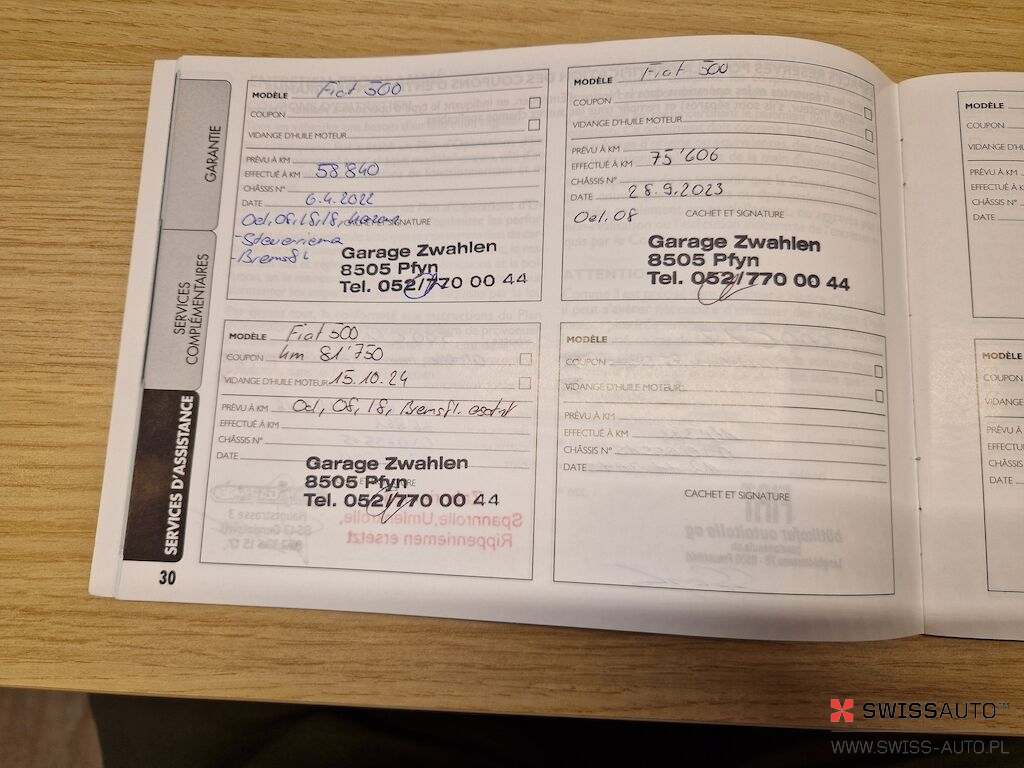 GARANTIE
SERVICES
COMPLÉMENTAIRES
SERVICES D'ASSISTANCE
30
MODÈLE Fiat 500
COUPON
VIDANGE D'HUILE MOTEUR
PRÉVU À KM
EFFECTUÉ À KM 58'840
CHÂSSIS N°
DATE 6.4.2022
CACHET ET SIGNATURE
Garage Zwahlen
8505 Pfyn
Tel. 052/770 00 44
MODÈLE Fiat 500
COUPON
VIDANGE D'HUILE MOTEUR
PRÉVU À KM
EFFECTUÉ À KM 75'606
CHÂSSIS N°
DATE 28.9.2023
Oel, 08 CACHET ET SIGNATURE
Garage Zwahlen
8505 Pfyn
Tel. 052/770 00 44
MODÈLE Fiat 500
COUPON km 81'750
VIDANGE D'HUILE MOTEUR 15.10.24
PRÉVU À KM Oel, 08, 18, Bremsfl.
EFFECTUÉ À KM
CHÂSSIS N°
DATE
Garage Zwahlen
8505 Pfyn
Tel. 052/770 00 44
MODÈLE
COUPON
VIDANGE D'HUILE MOTEUR
PRÉVU À KM
EFFECTUÉ À KM
CHÂSSIS N°
DATE
CACHET ET SIGNATURE
MODÈLE
COUPON
PRÉVU À KM
EFFECTUÉ À K
CHÂSSIS N°
DATE
MODÈLE
COUPON
VIDANGE
PRÉVU À
EFFECTUÉ
CHÂSSIS
DATE
SWISSAUTO
WWW.SWISS-AUTO.PL